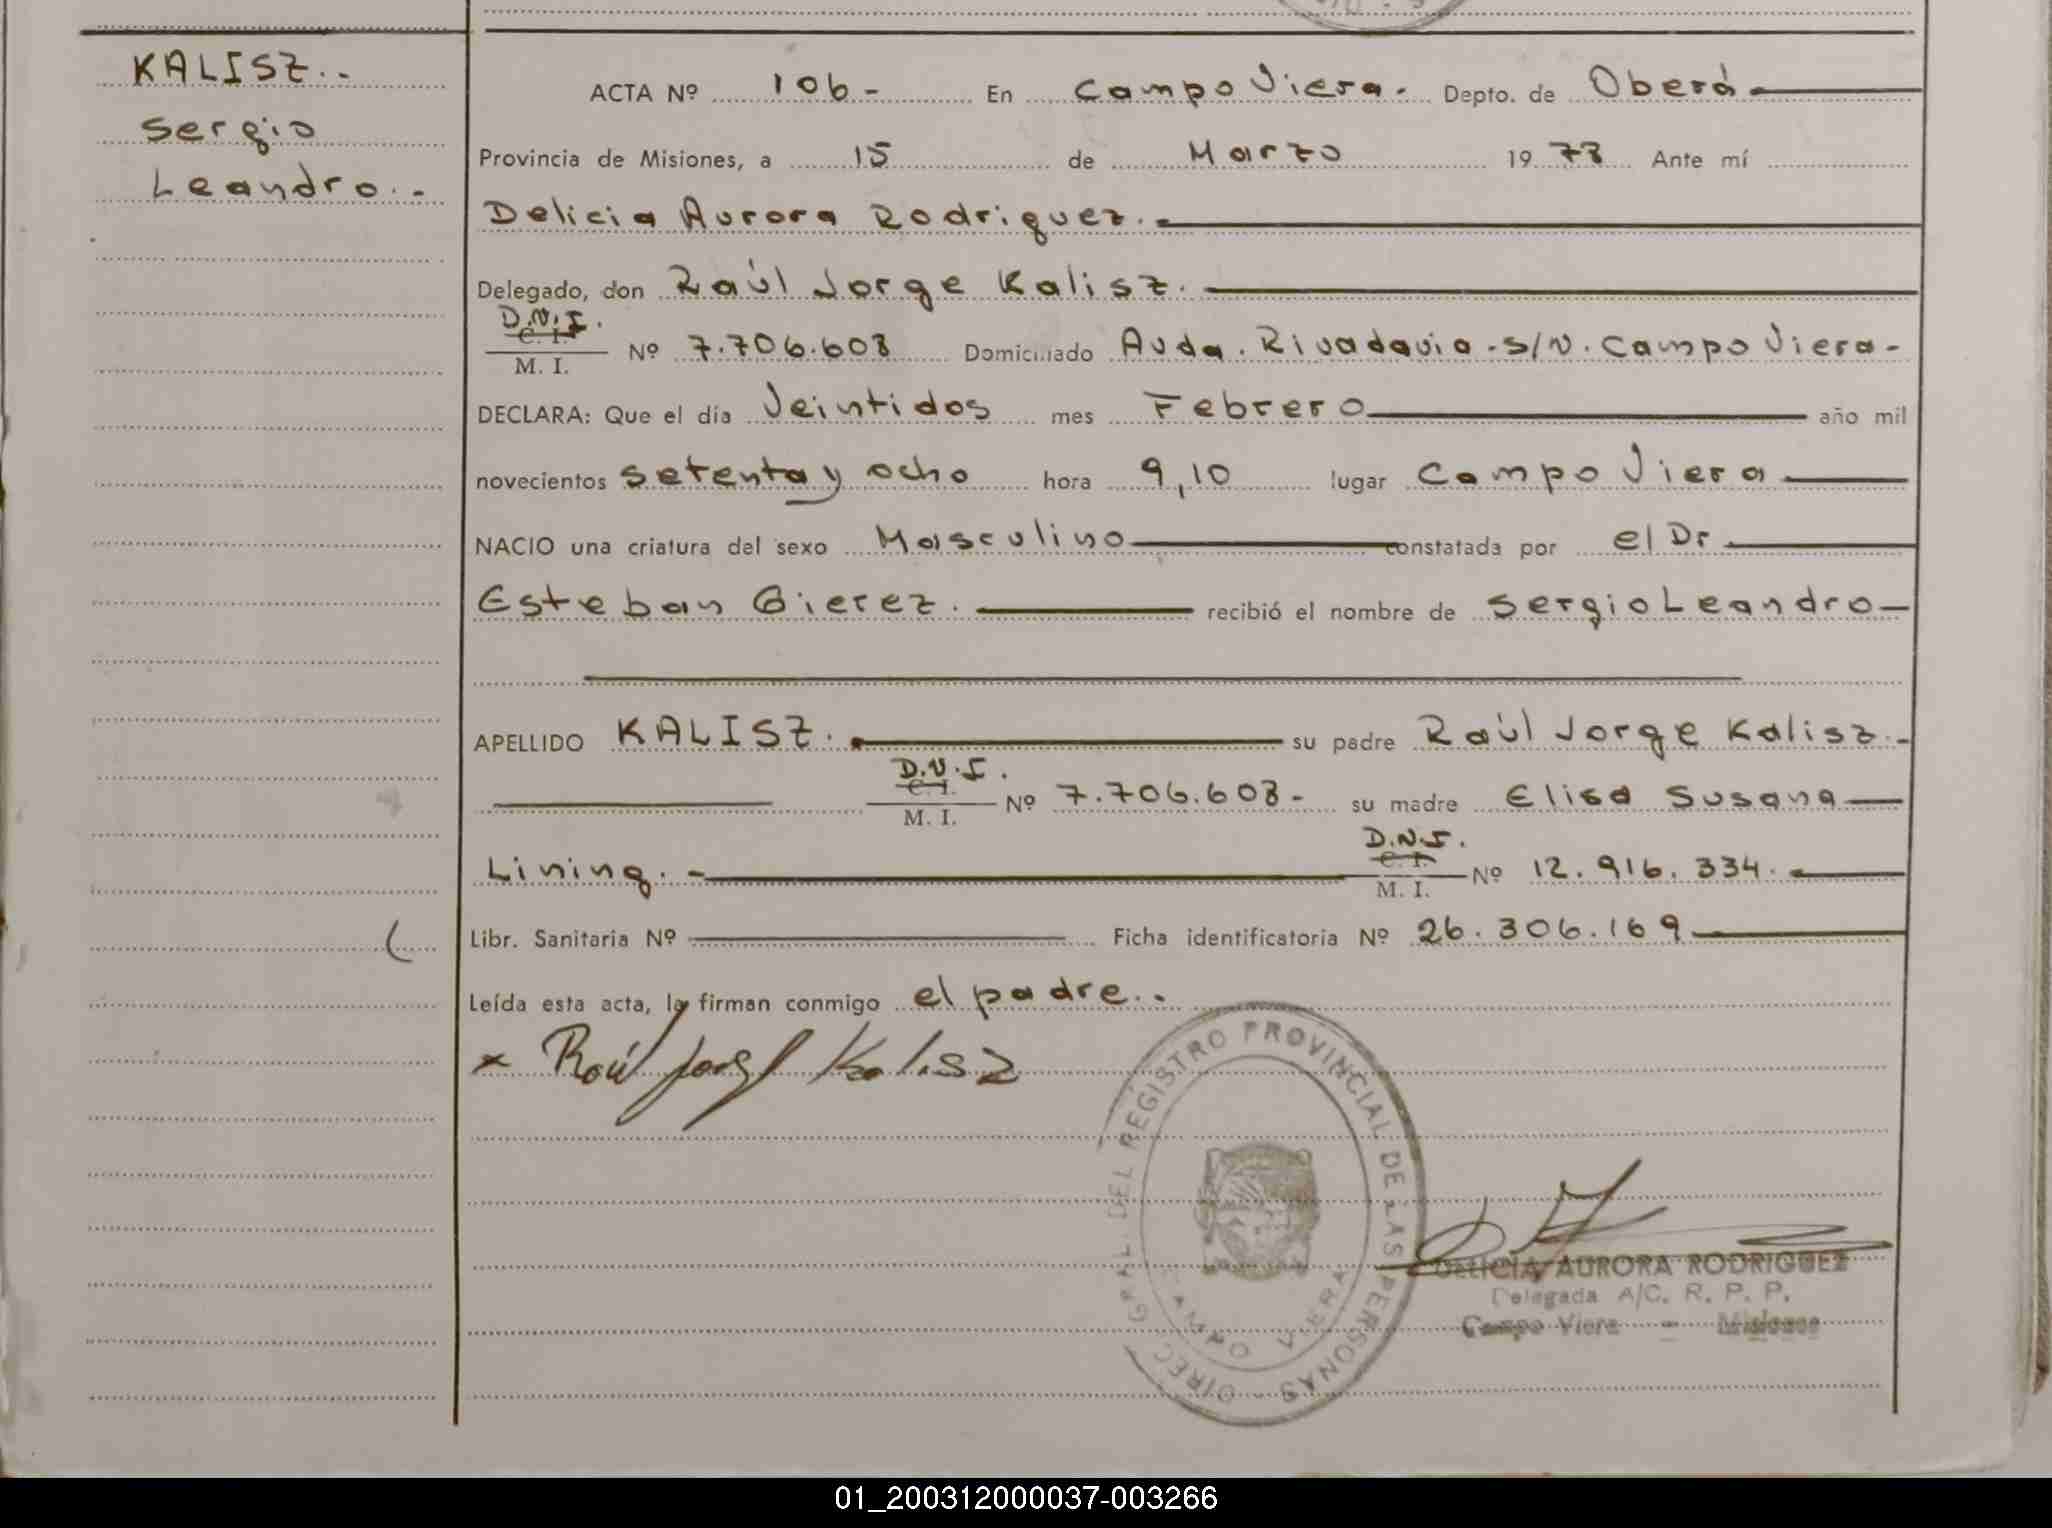 KALISZ..
Sergio
Leandro.-
ACTA Nº 106- En Campo Viera. Depto. de Oberá
Provincia de Misiones, a 15 de Marzo 1978 Ante mí
Delicia Aurora Rodriguez.
Delegado, don Raúl Jorge Kalisz.
D.N.I.
C. I.
M. I.
Nº 7.706.608 Domiciliado Avda. Rivadavia.s/N. Campo Viera-
DECLARA: Que el día Veintidos mes Febrero año mil
novecientos setenta y ocho hora 9,10 lugar Campo Viera
NACIO una criatura del sexo Masculino constatada por el Dr
Esteban Gierez. recibió el nombre de Sergio Leandro-
APELLIDO KALISZ. su padre Raúl Jorge Kalisz.-
D.N.I.
C. I.
M. I.
Nº 7.706.608- su madre Elisa Susana
Lining.-
D.N.I.
C. I.
M. I.
Nº 12.916.334.
Libr. Sanitaria Nº Ficha identificatoria Nº 26.306.169
Leída esta acta, la firman conmigo el padre..
x Raúl Jorge Kalisz
DIREC. GRAL. DEL REGISTRO PROVINCIAL DE LAS PERSONAS -
CAMPO VIERA
DELICIA AURORA RODRIGUEZ
Delegada A/C. R. P. P.
Campo Viera - Misiones
01_200312000037-003266